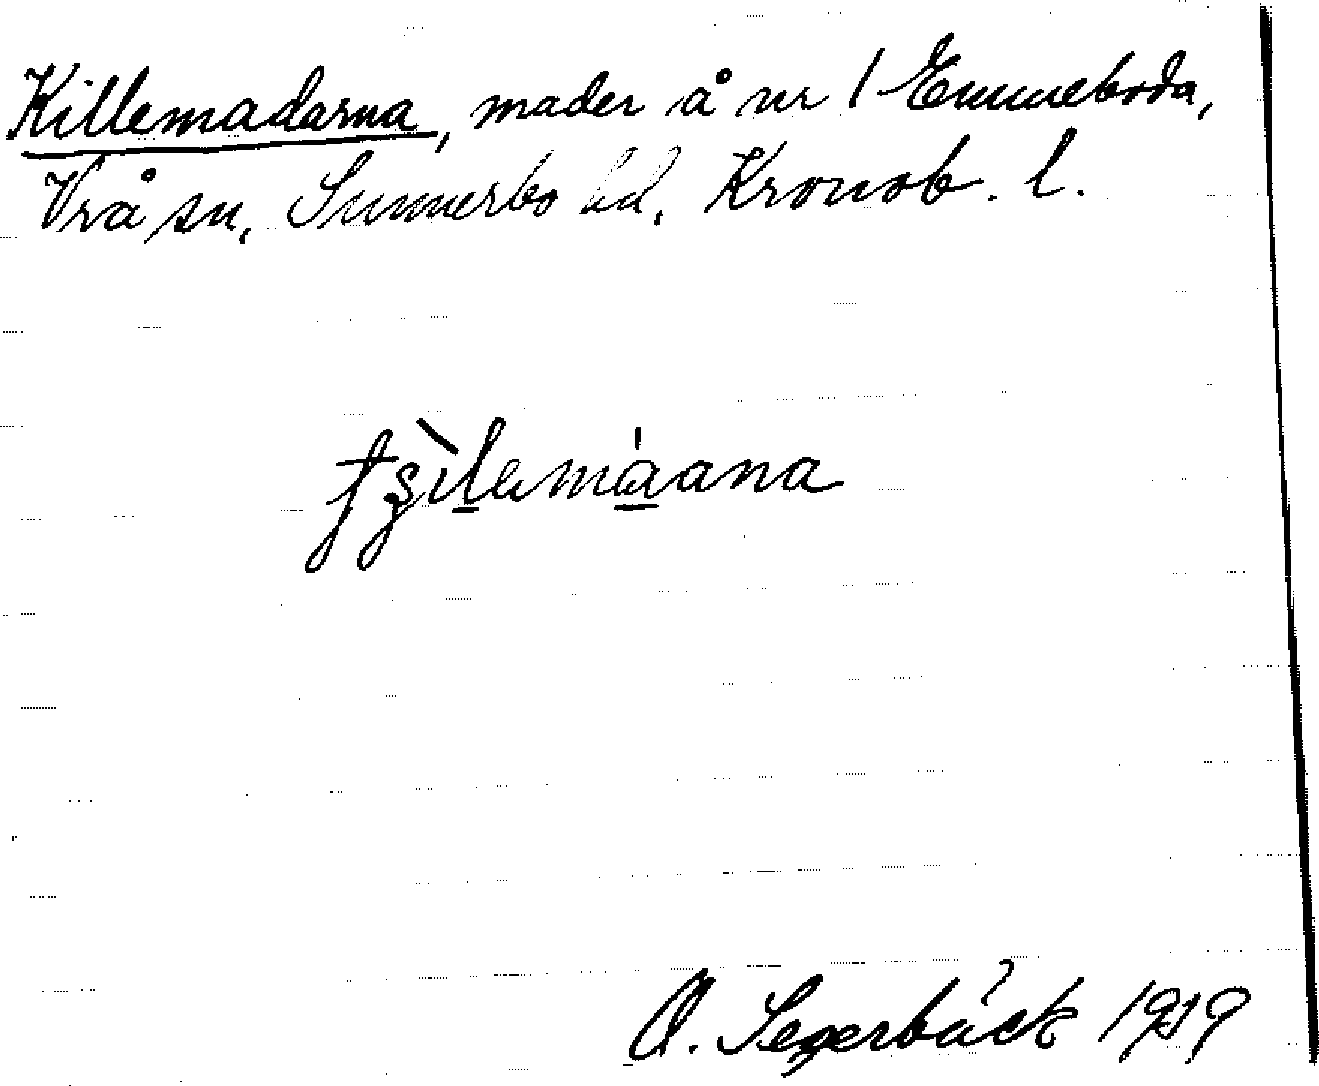 Killemadarna, mader å nr 1 Emmeboda,
Vrå sn, Sunnerbo hd. Kronob. l.
A. Segerbäck 1919